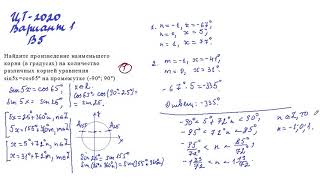 ЦТ-2020
Вариант 1
В5
Найдите произведение наименьшего
корня (в градусах) на количество
различных корней уравнения
sin5x=cos65° на промежутке (-90°; 90°)
sin5x = cos65°;
sin5x = sin25°;
cos65° = cos(90°-25°)
= sin25.
5x = 25° + 360°n, n∈Z
5x = 155° + 360°n, n∈Z
x = 5° + 72°n, n∈Z
x = 31° + 72°n, n∈Z
sin25° = sin155°
1. n = -1, x = -67°
n = 0, x = 5°;
n = 1, x = 77°
2. n = -1, x = -41°
n = 0, x = 31°.
-67°·5 = -335°
Ответ: -335°
-90° < 5 + 72°n < 90°,
-95° < 72°n < 85°;
n = -1, 0, 1.